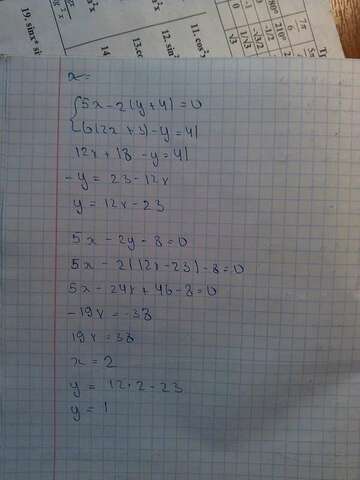 19. sinx* si
14
13.co
12. sin²
11. cos²
7π
6
210°
-1/2
-√3/2
1/√3
√3
x=
5x-2(y+4)=0
6(2x+3)-y=41
12x+18-y=41
-y=23-12x
y=12x-23
5x-2y-8=0
5x-2(12x-23)-8=0
5x-24x+46-8=0
-19x=-38
19x=38
x=2
y=12·2-23
y=1